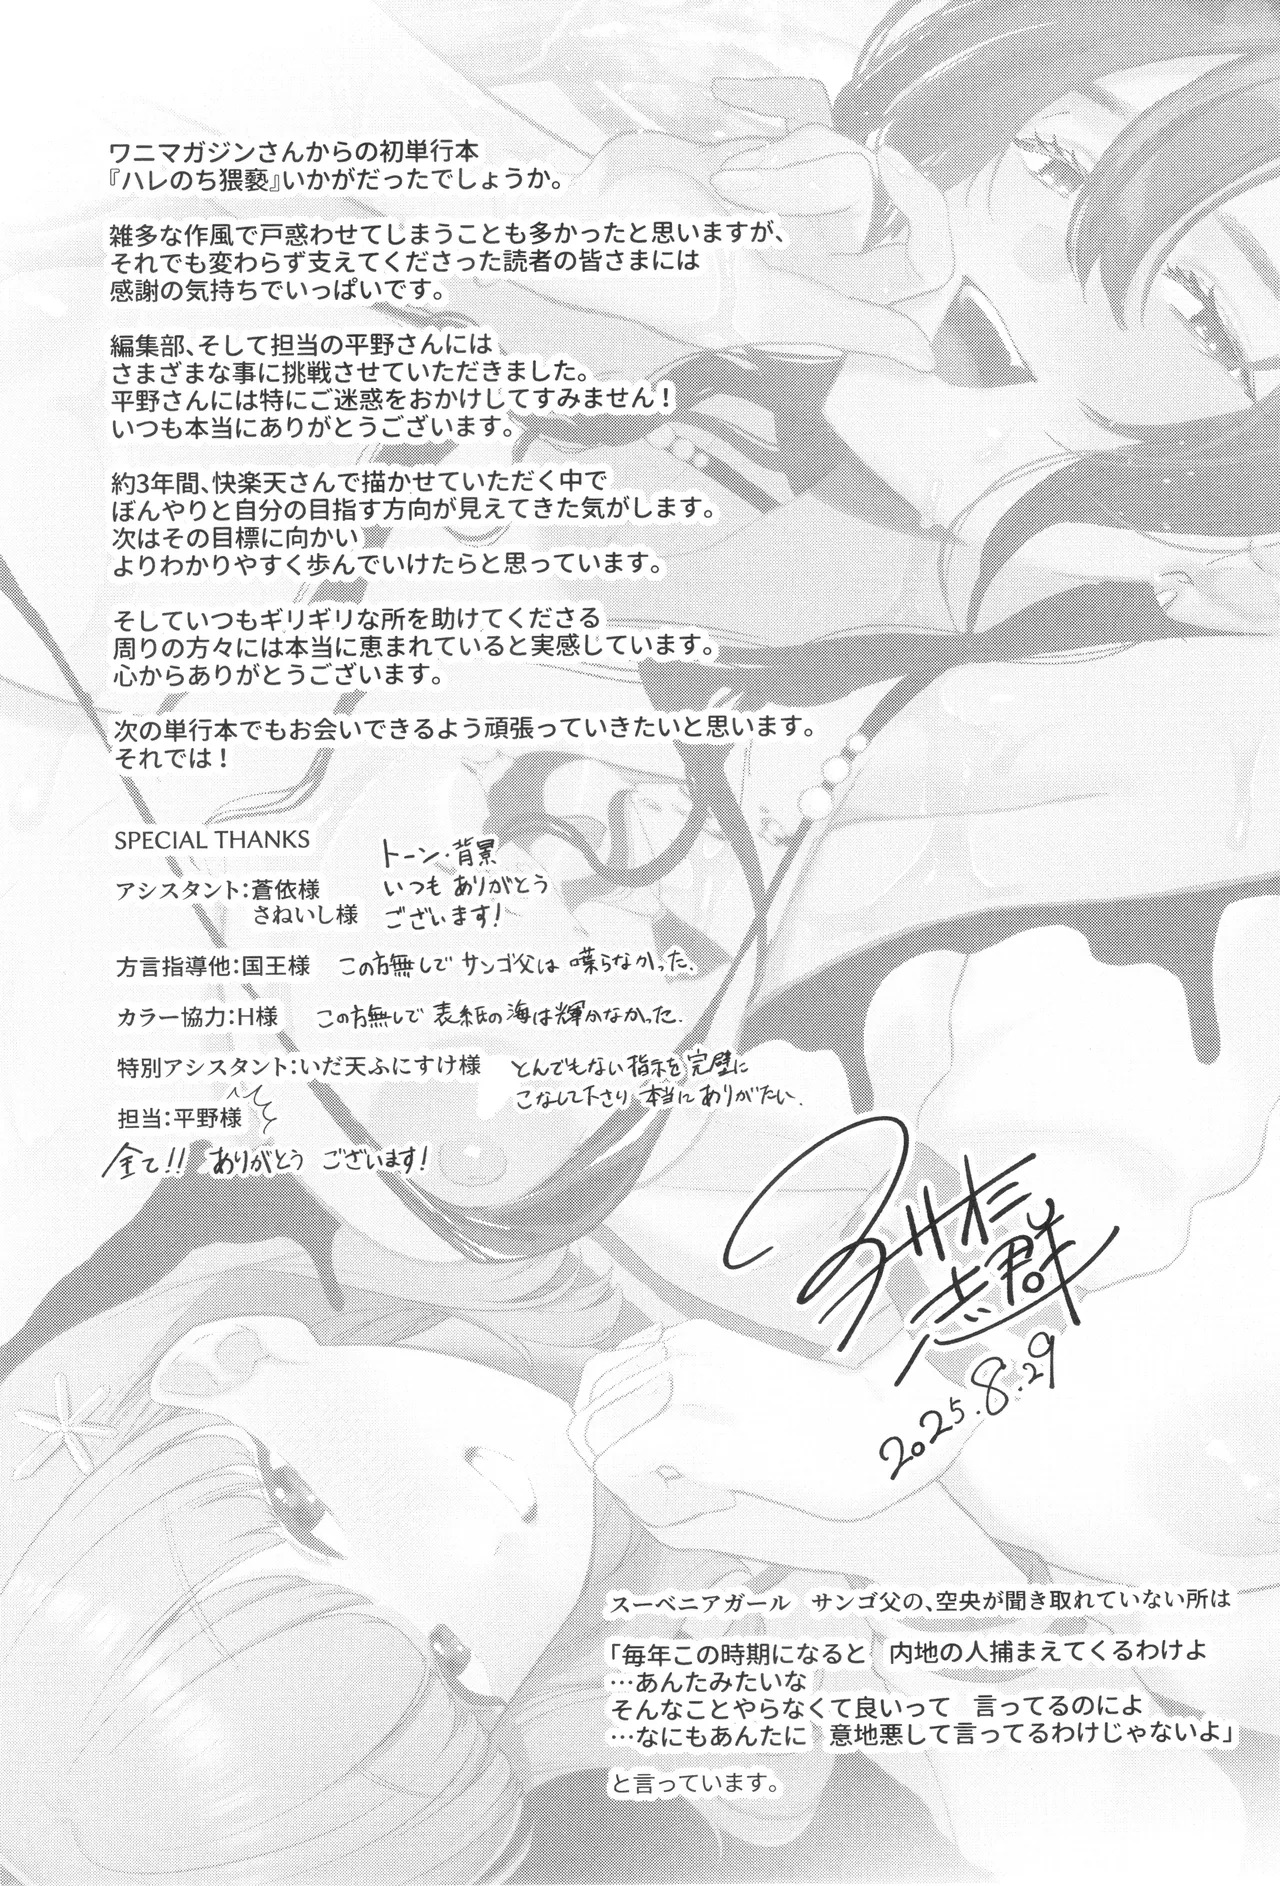 ワニマガジンさんからの初単行本
『ハレのち猥褻』いかがだったでしょうか。
雑多な作風で戸惑わせてしまうことも多かったと思いますが、
それでも変わらず支えてくださった読者の皆さまには
感謝の気持ちでいっぱいです。
編集部、そして担当の平野さんには
さまざまな事に挑戦させていただきました。
平野さんには特にご迷惑をおかけしてすみません！
いつも本当にありがとうございます。
約3年間、快楽天さんで描かせていただく中で
ぼんやりと自分の目指す方向が見えてきた気がします。
次はその目標に向かい
よりわかりやすく歩んでいけたらと思っています。
そしていつもギリギリな所を助けてくださる
周りの方々には本当に恵まれていると実感しています。
心からありがとうございます。
次の単行本でもお会いできるよう頑張っていきたいと思います。
それでは！
SPECIAL THANKS
アシスタント：蒼依様
さねいし様
トーン・背景
いつも ありがとう
ございます！
方言指導他：国王様 この方無しで サンゴ父は 喋らなかった.
カラー協力：H様 この方無しで 表紙の海は輝かなかった.
特別アシスタント：いだ天ふにすけ様 とんでもない指示を完璧に
こなして下さり 本当に ありがたい.
担当：平野様
全て!! ありがとう ございます!
志群
2025.8.29
スーベニアガール　サンゴ父の、空央が聞き取れていない所は
「毎年この時期になると　内地の人捕まえてくるわけよ
…あんたみたいな
そんなことやらなくて良いって　言ってるのによ
…なにもあんたに　意地悪して言ってるわけじゃないよ」
と言っています。